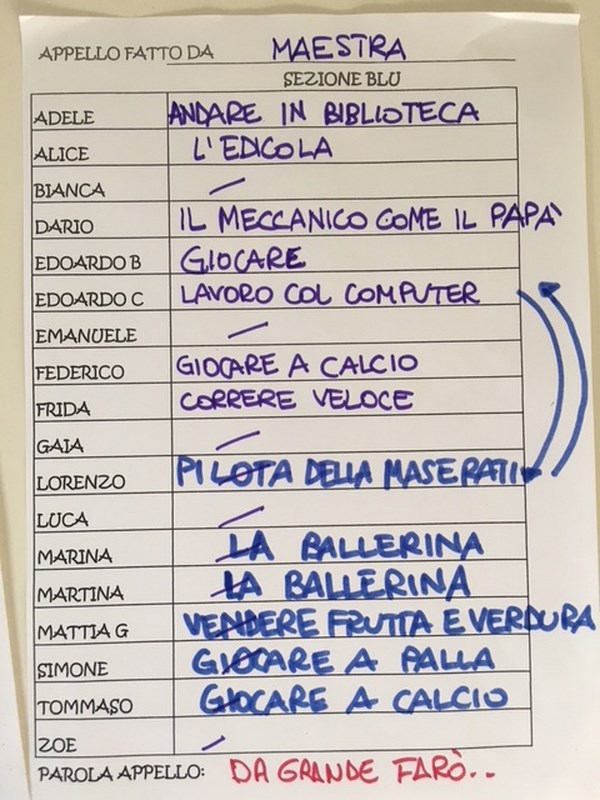 APPELLO FATTO DA MAESTRA
SEZIONE BLU
ADELE ANDARE IN BIBLIOTECA
ALICE L'EDICOLA
BIANCA
DARIO IL MECCANICO COME IL PAPA'
EDOARDO B GIOCARE
EDOARDO C LAVORO COL COMPUTER
EMANUELE
FEDERICO GIOCARE A CALCIO
FRIDA CORRERE VELOCE
GAIA
LORENZO PILOTA DELLA MASERATI
LUCA
MARINA LA BALLERINA
MARTINA LA BALLERINA
MATTIA G VENDERE FRUTTA E VERDURA
SIMONE GIOCARE A PALLA
TOMMASO GIOCARE A CALCIO
ZOE
PAROLA APPELLO: DA GRANDE FARÒ..